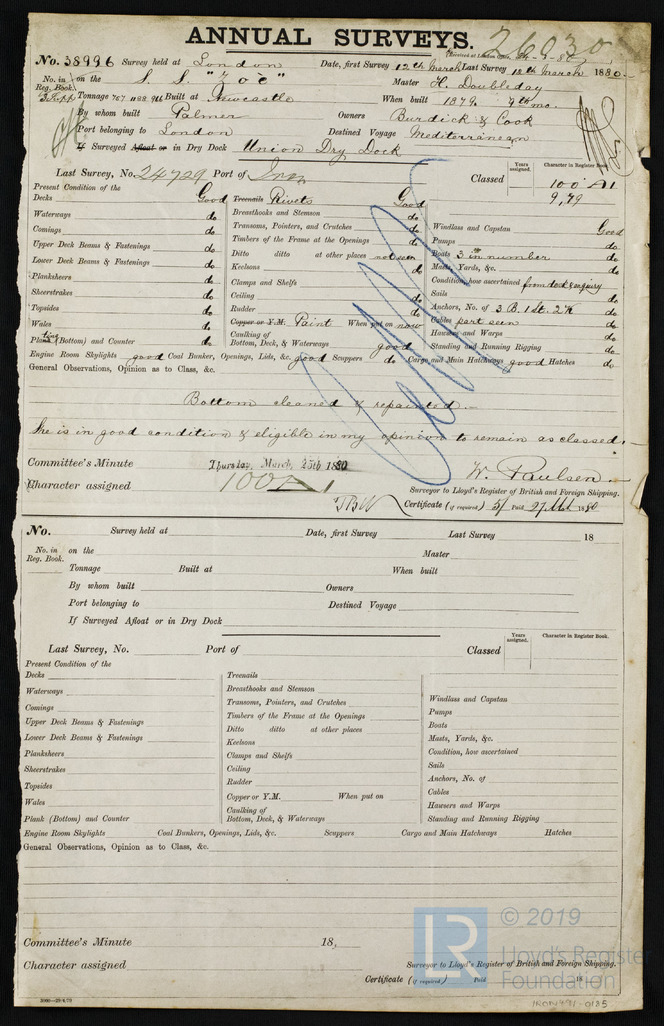 ANNUAL SURVEYS.
26030
No. 38996 Survey held at London Date, first Survey 12th March Last Survey 12th March 1880
No. in on the S. S. "Zoe" Master H. Doubleday
Reg. Book.
Tonnage 767 1188.96 Built at Newcastle When built 1879. 9th mo.
By whom built Palmer Owners Burdick & Cook
Port belonging to London Destined Voyage Mediterranean
If Surveyed Afloat or in Dry Dock Union Dry Dock
Last Survey, No. 24729 Port of Iron Classed Years assigned. Character in Register Book.
100 A1
9,79
Present Condition of the
Decks Good Treenails Rivets Good
Waterways do Breasthooks and Stemson do
Comings do Transoms, Pointers, and Crutches do Windlass and Capstan Good
Timbers of the Frame at the Openings do Pumps do
Upper Deck Beams & Fastenings do Ditto ditto at other places not seen Boats 3 in number do
Lower Deck Beams & Fastenings do Keelsons do Masts, Yards, &c. do
Planksheers do Clamps and Shelfs do Condition, how ascertained from deck & inquiry
Sheerstrakes do Ceiling do Sails do
Topsides do Rudder do Anchors, No. of 3 B. 1 St. 2 K do
Wales do Copper or Y.M. Paint When put on now Cables part seen do
Plating (Bottom) and Counter do Caulking of Bottom, Deck, & Waterways good Hawsers and Warps do
Standing and Running Rigging do
Engine Room Skylights good Coal Bunker, Openings, Lids, &c. good Scuppers do Cargo and Main Hatchways good Hatches do
General Observations, Opinion as to Class, &c.
Bottom cleaned & repainted.
She is in good condition & eligible in my opinion to remain as classed.
Committee's Minute Thursday, March, 25th 1880
Character assigned 100 A 1
W. Paulsen
Surveyor to Lloyd's Register of British and Foreign Shipping.
Certificate (if required) 5/ Paid 1880
No. Survey held at Date, first Survey Last Survey 18
No. in on the Master
Reg. Book.
Tonnage Built at When built
By whom built Owners
Port belonging to Destined Voyage
If Surveyed Afloat or in Dry Dock
Last Survey, No. Port of Classed Years assigned. Character in Register Book.
Present Condition of the
Decks Treenails
Waterways Breasthooks and Stemson
Comings Transoms, Pointers, and Crutches Windlass and Capstan
Upper Deck Beams & Fastenings Timbers of the Frame at the Openings Pumps
Lower Deck Beams & Fastenings Ditto ditto at other places Boats
Planksheers Keelsons Masts, Yards, &c.
Sheerstrakes Clamps and Shelfs Condition, how ascertained
Topsides Ceiling Sails
Wales Rudder Anchors, No. of
Copper or Y.M. When put on Cables
Plank (Bottom) and Counter Caulking of Bottom, Deck, & Waterways Hawsers and Warps
Standing and Running Rigging
Engine Room Skylights Coal Bunkers, Openings, Lids, &c. Scuppers Cargo and Main Hatchways Hatches
General Observations, Opinion as to Class, &c.
Committee's Minute 18,
Character assigned
Surveyor to Lloyd's Register of British and Foreign Shipping.
Certificate (if required) Paid 18
LR © 2019
Lloyd's Register
Foundation
IRON491-0185